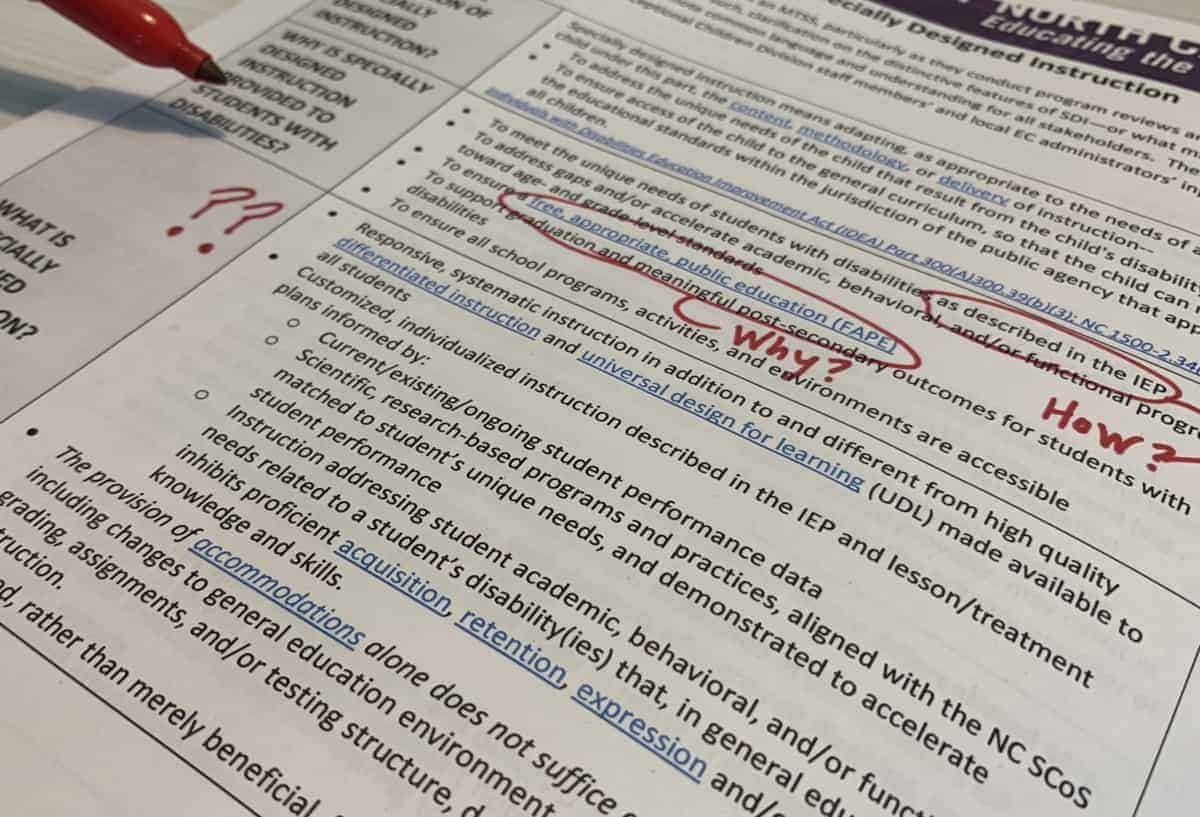 NORTH C
Educating the
ecially Designed Instruction
an MTSS, particularly as they conduct program reviews a
such, clarification on the distinctive features of SDI—or what m
common language and understanding for all stakeholders. Tho
ceptional Children Division staff members' and local EC administrators' in
ON OF
ALLY
DESIGNED
INSTRUCTION?
Specially designed instruction means adapting, as appropriate to the needs of a
child under this part, the content, methodology, or delivery of instruction—
• To address the unique needs of the child that result from the child's disabilit
• To ensure access of the child to the general curriculum, so that the child can
the educational standards within the jurisdiction of the public agency that app
all children.
Individuals with Disabilities Education Improvement Act (IDEA) Part 300(A)300.39(b)(3); NC 1500-2.34
WHY IS SPECIALLY
DESIGNED
INSTRUCTION
PROVIDED TO
STUDENTS WITH
DISABILITIES?
• To meet the unique needs of students with disabilities as described in the IEP
• To address gaps and/or accelerate academic, behavioral, and/or functional progre
toward age and grade-level standards
• To ensure a free, appropriate, public education (FAPE)
• To support graduation and meaningful post-secondary outcomes for students with
disabilities
• To ensure all school programs, activities, and environments are accessible
Why?
How?
??
WHAT IS
CIALLY
ED
ON?
• Responsive, systematic instruction in addition to and different from high quality
differentiated instruction and universal design for learning (UDL) made available to
all students
• Customized, individualized instruction described in the IEP and lesson/treatment
plans informed by:
o Current/existing/ongoing student performance data
o Scientific, research-based programs and practices, aligned with the NC SCoS
matched to student's unique needs, and demonstrated to accelerate
student performance
o Instruction addressing student academic, behavioral, and/or funct
needs related to a student's disability(ies) that, in general edu
inhibits proficient acquisition, retention, expression and/
knowledge and skills.
• The provision of accommodations alone does not suffice
including changes to general education environment
grading, assignments, and/or testing structure, d
truction.
ed, rather than merely beneficial